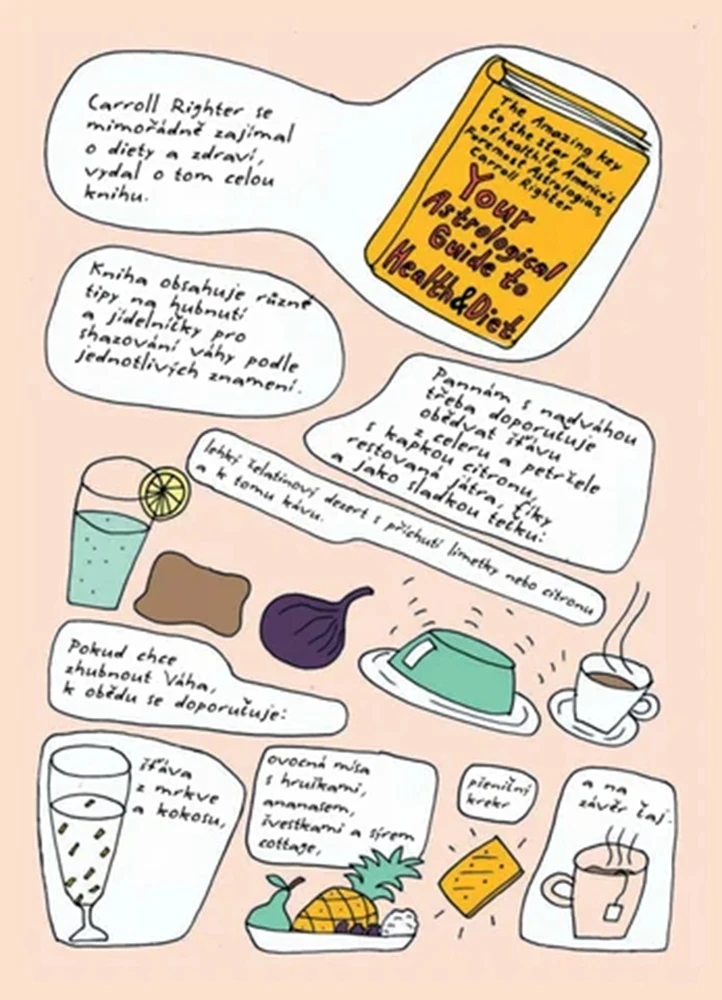 Carroll Righter se
mimořádně zajímal
o diety a zdraví,
vydal o tom celou
knihu.
The Amazing key
to the star Paws
of health! By America's
Foremost Astrologian,
Carroll Righter
Your
Astrological
Guide to
Health&Diet
Kniha obsahuje různé
tipy na hubnutí
a jídelníčky pro
shazování váhy podle
jednotlivých znamení.
Pannám s nadváhou
třeba doporučuje
obědvat šťávu
z celeru a petržele
s kapkou citronu,
restovaná játra, fíky
a jako sladkou tečku:
lehký želatinový dezert s příchutí limetky nebo citronu
a k tomu kávu.
Pokud chce
zhubnout Váha,
k obědu se doporučuje:
šťáva
z mrkve
a kokosu,
ovocná mísa
s hruškami,
ananasem,
švestkami a sýrem
cottage,
pšeničný
krekr
a na
závěr čaj.